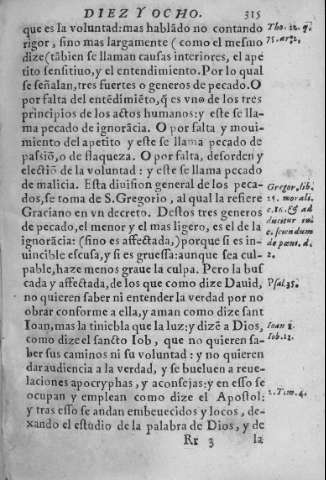 DIEZ Y OCHO. 315
que es la voluntad: mas hablãdo no contando
rigor, sino mas largamente (como el mesmo
dize (tãbien se llaman causas interiores, el ape
tito sensitiuo, y el entendimiento. Por lo qual
se señalan, tres suertes o generos de pecado. O
por falta del entẽdimiẽto, q̃ es vno de los tres
principios de los actos humanos: y este se lla-
ma pecado de ignorãcia. O por falta y moui-
miento del apetito y este se llama pecado de
passiõ, o de flaqueza. O por falta, desorden y
electiõ de la voluntad: y este se llama pecado
de malicia. Esta diuision general de los peca-
dos, se toma de S. Gregorio, al qual la refiere
Graciano en vn decreto. Destos tres generos
de pecado, el menor y el mas ligero, es el de la
ignorãcia: (sino es affectada,) porque si es in-
uincible escusa, y si es gruessa: aunque sea cul-
pable, haze menos graue la culpa. Pero la bus
cada y affectada, de los que como dize Dauid,
no quieren saber ni entender la verdad por no
obrar conforme a ella, y aman como dize sant
Ioan, mas la tiniebla que la luz: y dizẽ a Dios,
como dize el sancto Iob, que no quieren sa-
ber sus caminos ni su voluntad: y no quieren
dar audiencia a la verdad, y se bueluen a reue-
laciones apocryphas, y aconsejas: y en esso se
ocupan y emplean como dize el Apostol:
y tras esso se andan embeuecidos y locos, de-
xando el estudio de la palabra de Dios, y de
Rr 3 la
Tho. 12. q.
75. ar. 2.
Gregor. lib.
25. morali.
c. 16. & ad
ducitur in
c. secundum
de pœni. d.
2.
Psal. 35.
Ioan 3.
Iob. 21.
2. Tim. 4.